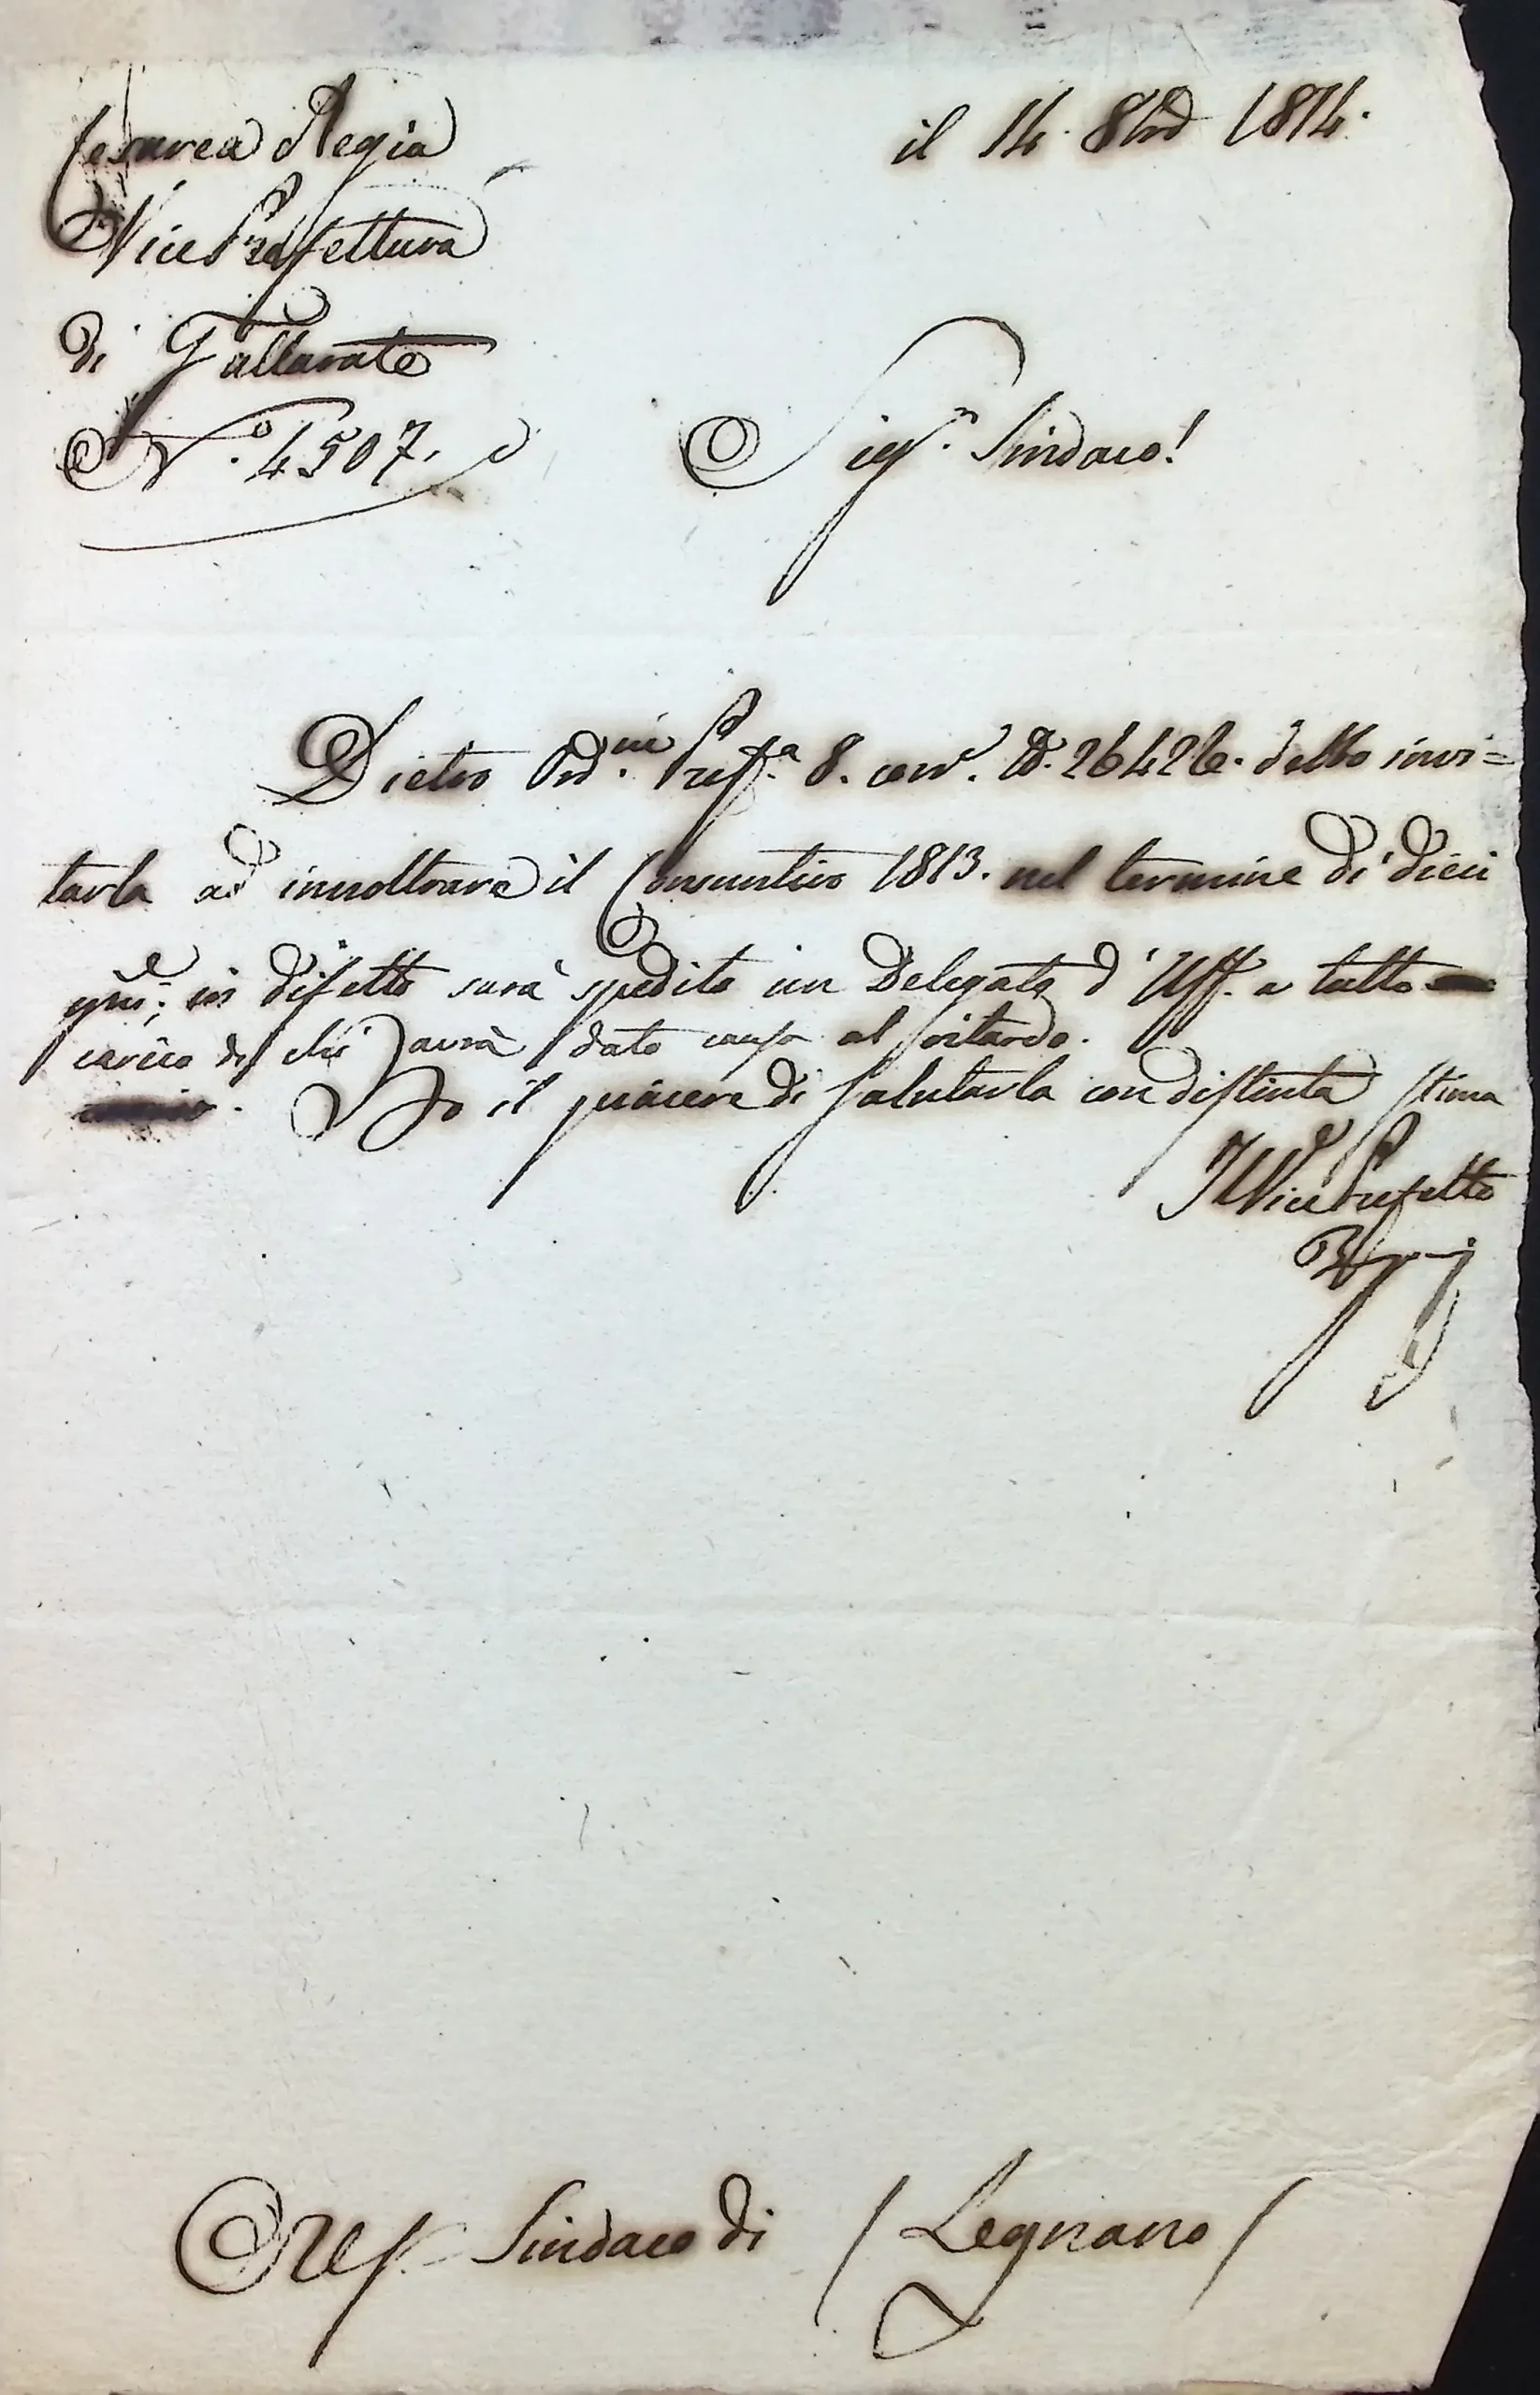 Cesarea Regia
Vice Prefettura
di Gallarate
N.º 4507.
il 14. 8bre 1814.
Sig.r Sindaco!
Dietro Ord.ni Pref.a 8. corr. N. 26426. debbo invi=
tarla ad innoltrare il Consuntivo 1813. nel termine di dieci
gni.; in difetto sarà spedito un Delegato d'Uff. a tutto
carico di chi avrà dato causa al ritardo.
Ho il piacere di salutarla con distinta stima
Il Vice Prefetto
Sindaco di Legnano